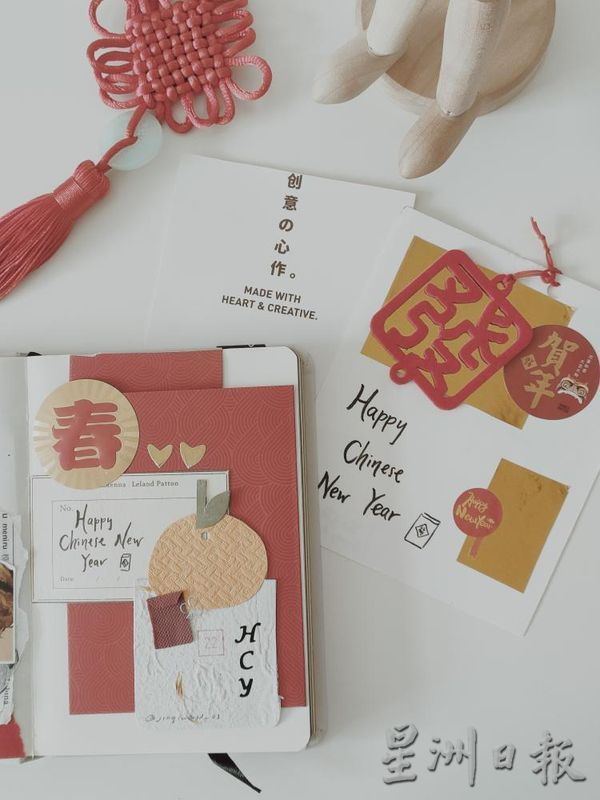 创
意
の
心
作。
MADE WITH
HEART & CREATIVE.
賀
年
Happy
Chinese
New Year
Happy
New Year
春
Leland Patton
No.
Happy
Chinese New
Year
Date
22
H
C
Y
星洲日報